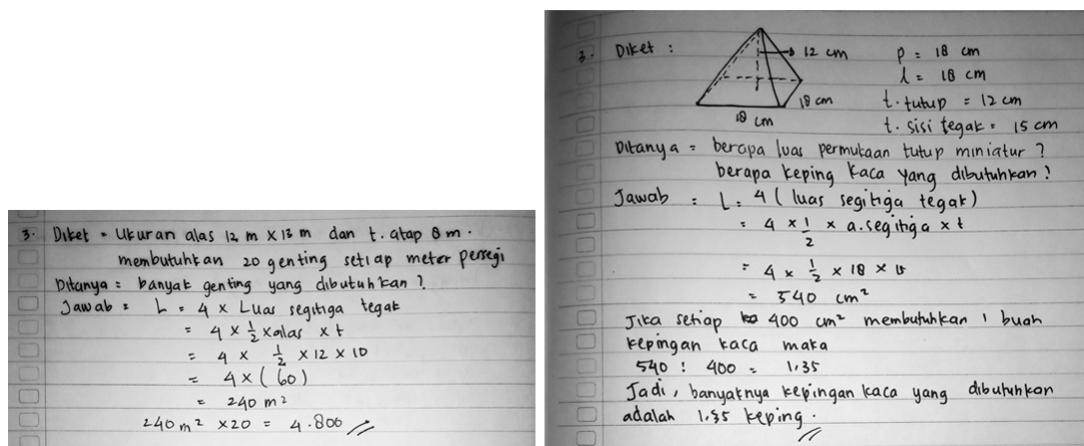 3. Diket = Ukuran alas 12 m x 12 m dan t. atap 8 m.
membutuhkan 20 genting setiap meter persegi
Ditanya = banyak genting yang dibutuhkan?
Jawab = L = 4 x Luas segitiga tegak
= 4 x 1/2 x alas x t
= 4 x 1/2 x 12 x 10
= 4 x (60)
= 240 m²
240 m² x 20 = 4.800
3. Diket :
12 cm
18 cm
18 cm
p = 18 cm
l = 18 cm
t. tutup = 12 cm
t. sisi tegak = 15 cm
Ditanya = berapa luas permukaan tutup miniatur?
berapa keping kaca yang dibutuhkan?
Jawab : L = 4 (luas segitiga tegak)
= 4 x 1/2 x a.segitiga x t
= 4 x 1/2 x 18 x 15
= 540 cm²
Jika setiap 400 cm² membutuhkan 1 buah
kepingan kaca maka
540 : 400 = 1,35
Jadi, banyaknya kepingan kaca yang dibutuhkan
adalah 1,35 keping.